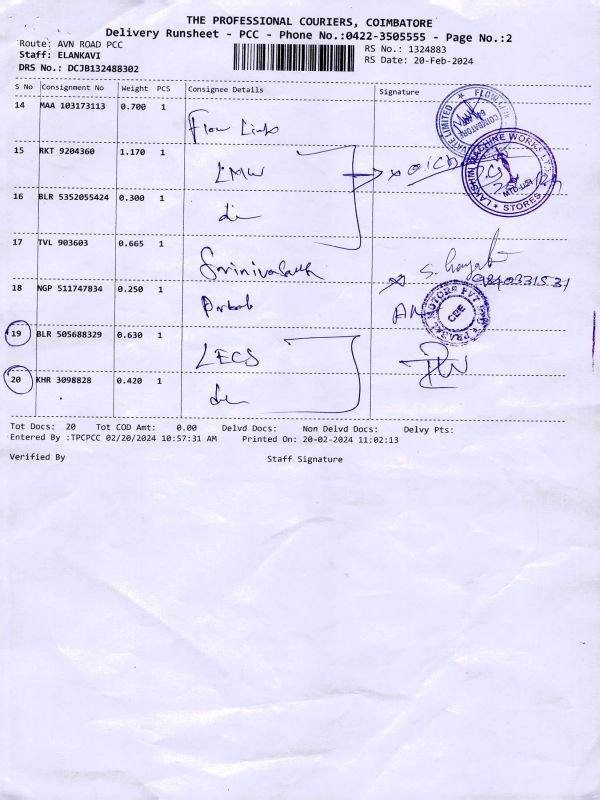 THE PROFESSIONAL COURIERS, COIMBATORE
Delivery Runsheet - PCC - Phone No.:0422-3505555 - Page No.:2
Route: AVN ROAD PCC
RS No.: 1324883
Staff: ELANKAVI
RS Date: 20-Feb-2024
DRS No.: DCJB132488302
S No Consignment No Weight PCS Consignee Details Signature
14 MAA 103173113 0.700 1
Flow Links
15 RKT 9204360 1.170 1
LMW
16 BLR 5352055424 0.300 1
17 TVL 903603 0.665 1
18 NGP 511747834 0.250 1
19 BLR 505688329 0.630 1
LECS
20 KHR 3098828 0.420 1
LAKSHMI MACHINE WORKS
STORES
PRABAL MOTORS PVT
CBE
Tot Docs: 20 Tot COD Amt: 0.00 Delvd Docs: Non Delvd Docs: Delvy Pts:
Entered By :TPCPCC 02/20/2024 10:57:31 AM Printed On: 20-02-2024 11:02:13
Verified By Staff Signature